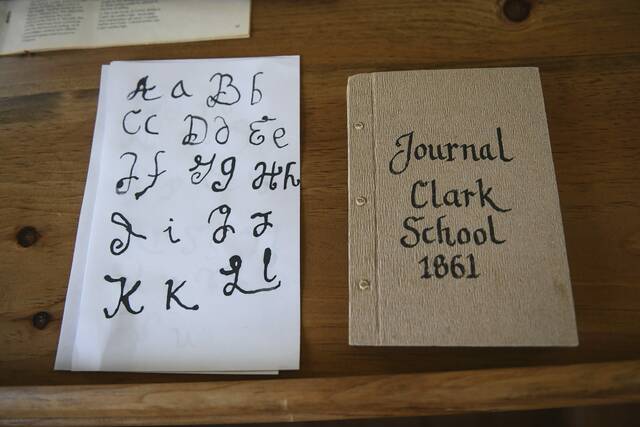 A a B b
C c D d E e
F f G g H h
I i J J
K K L l
Journal
Clark
School
1861